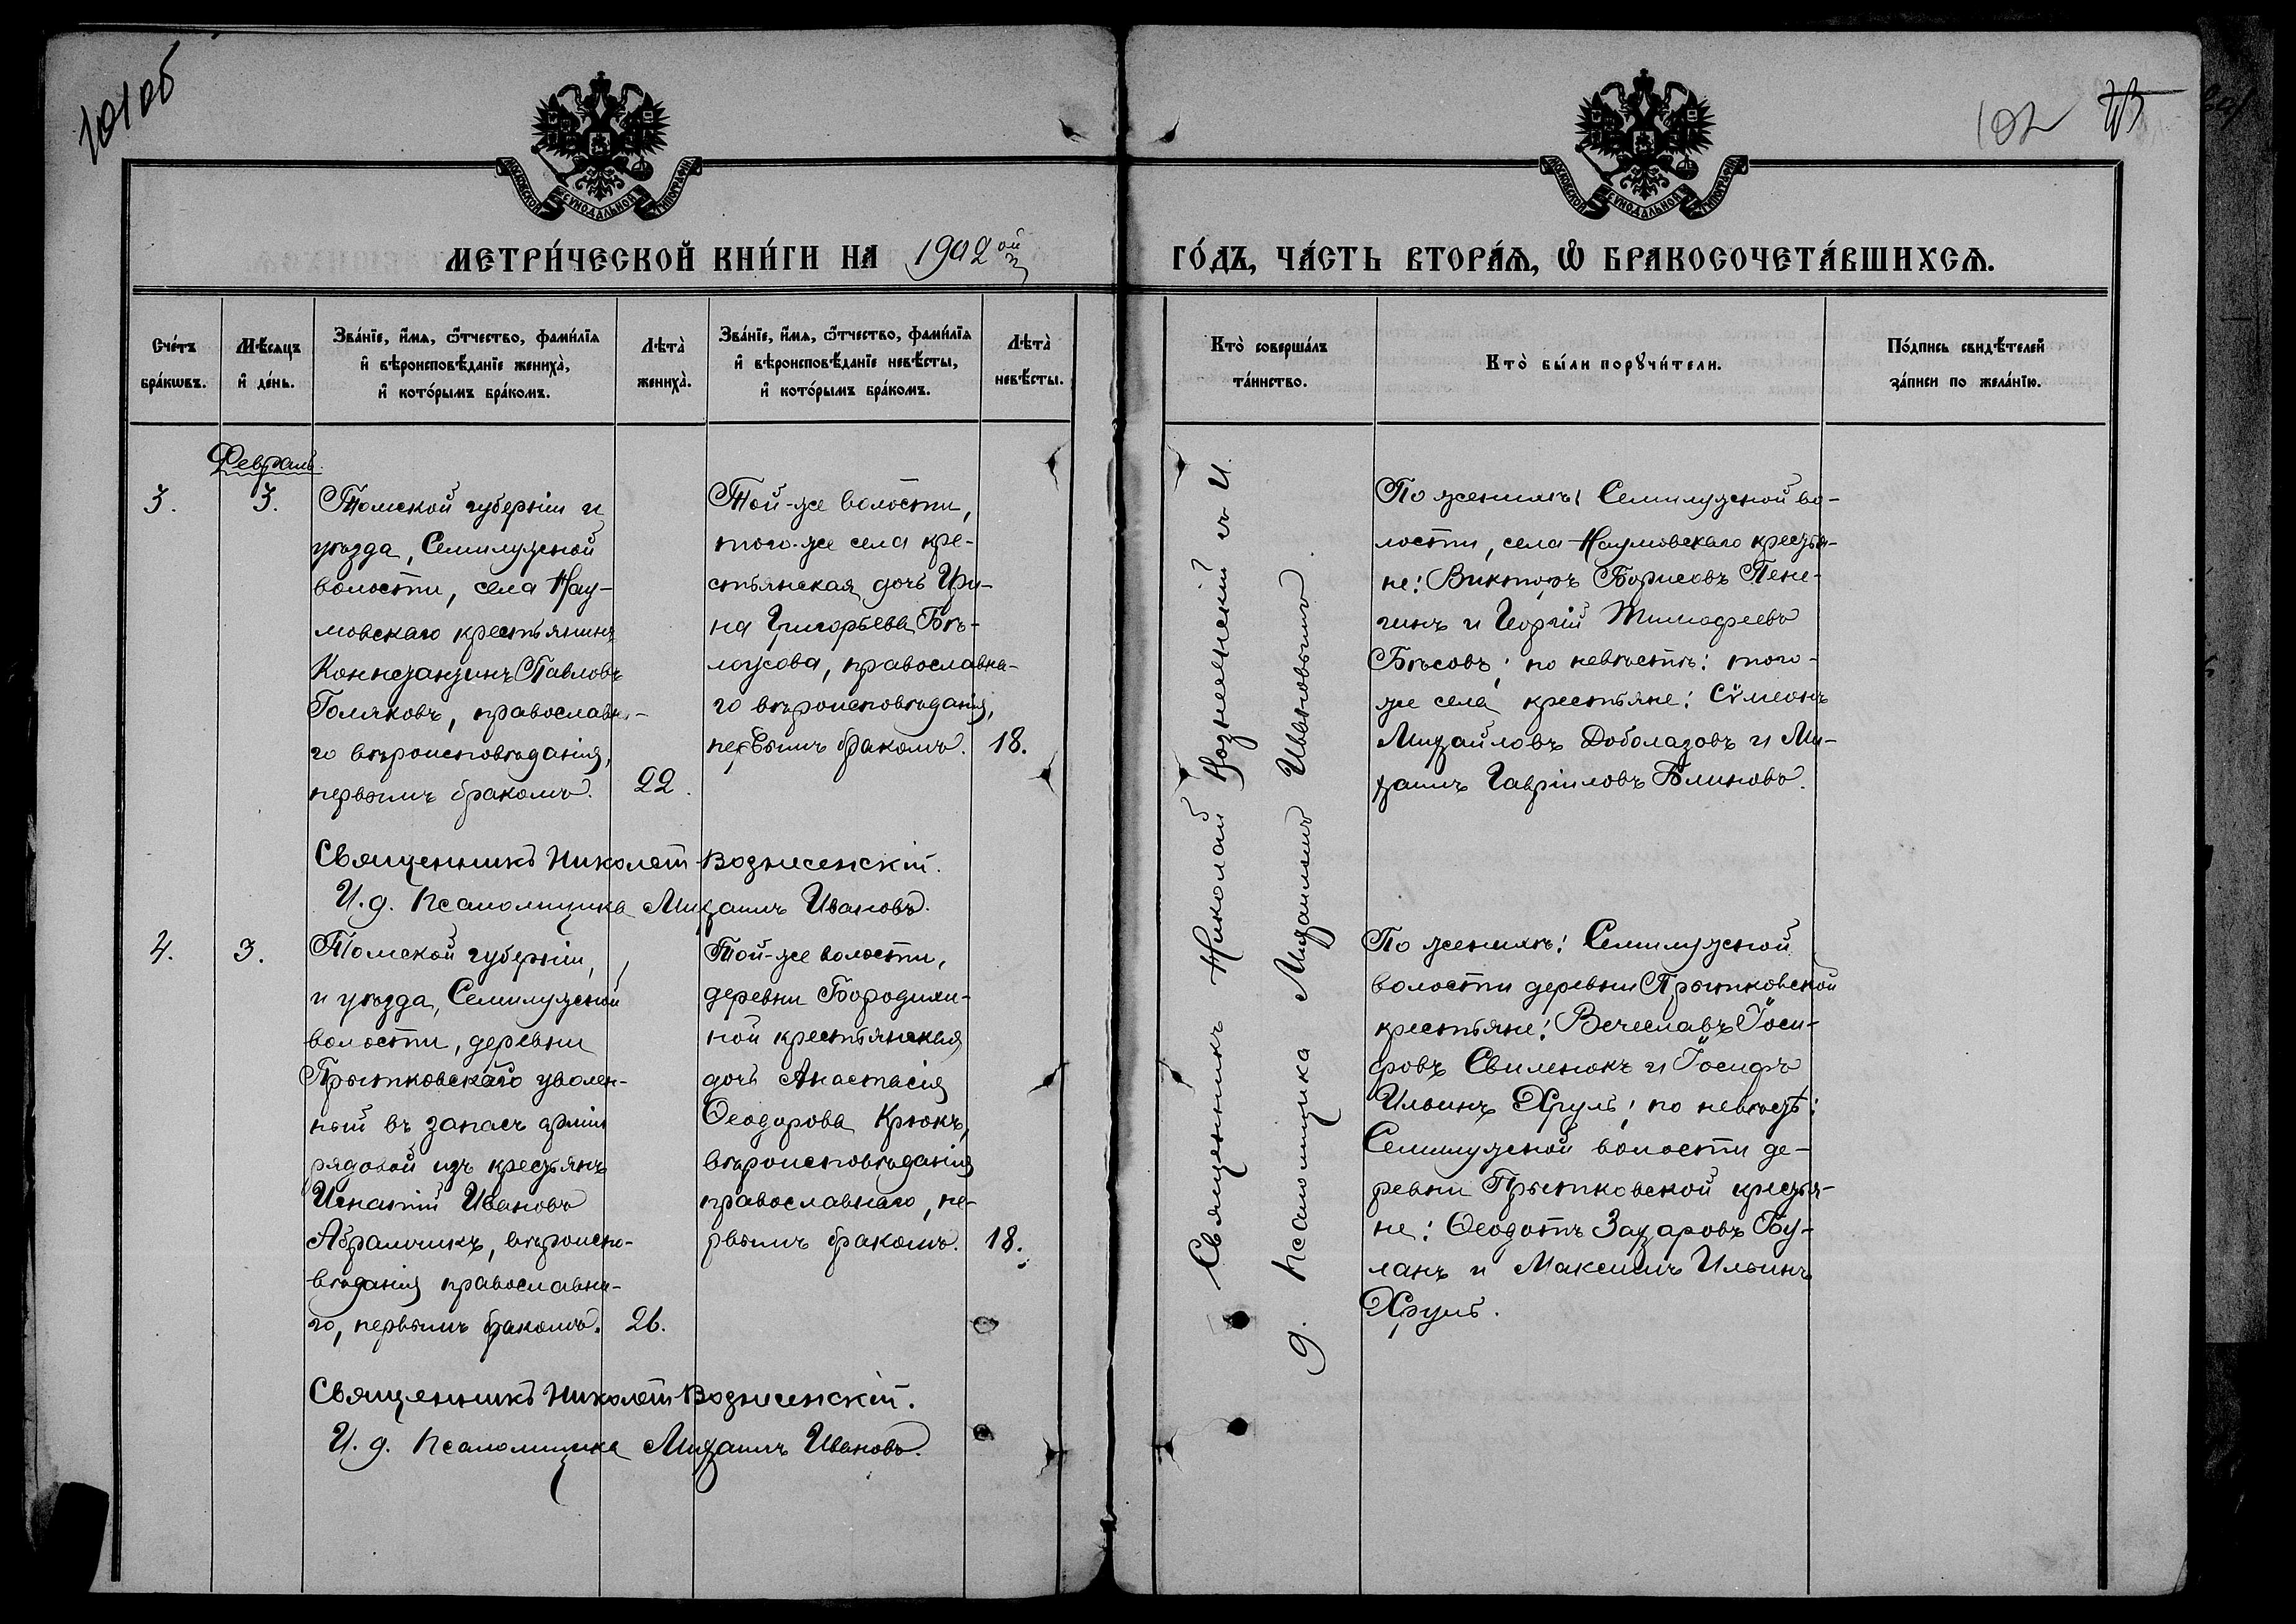 101об
102
МОСКОВСКОЙ СѴНОДАЛЬНОЙ ТИПОГРАФІИ
МОСКОВСКОЙ СѴНОДАЛЬНОЙ ТИПОГРАФІИ
МЕТРИ́ЧЕСКОЙ КНИ́ГИ НА 1902ой
ГО́ДЪ, ЧА́СТЬ ВТОРА́Ѧ, Ѡ҆ БРАКОСОЧЕТА́ВШИХСѦ.
Сче́тъ бра́кѡвъ.
Мѣ́сѧцъ и҆ де́нь.
Зва́нїе, и҆́мѧ, ѻ҆́тчество, фами́лїѧ и҆ вѣроисповѣ́данїе жениха̀, и҆ кото́рымъ бра́комъ.
Лѣта̀ жениха̀.
Зва́нїе, и҆́мѧ, ѻ҆́тчество, фами́лїѧ и҆ вѣроисповѣ́данїе невѣ́сты, и҆ кото́рымъ бра́комъ.
Лѣта̀ невѣ́сты.
Кто̀ соверша́лъ та́инство.
Кто̀ бы́ли порꙋчи́тели.
По́дпись свидѣ́телей за́писи по жела́нїю.
Февраль.
3.
3.
Томской губерніи и
уѣзда, Семилужной
волости, села Нау-
мовскаго крестьянинъ
Константинъ Павловъ
Голяковъ, православна-
го вѣроисповѣданія,
первымъ бракомъ.
22.
Той-же волости,
того-же села кре-
стьянская дочь Ири-
на Григорьева Бѣ-
лоусова, православна-
го вѣроисповѣданія,
первымъ бракомъ.
18.
Священникъ Николай Вознесенскій и И.
д. Псаломщика Михаилъ Ивановъ
По женихѣ: Семилужной во-
лости, села Наумовскаго крестья-
не: Викторъ Борисовъ Пене-
гинъ и Георгій Тимофеевъ
Бѣсовъ; по невѣстѣ: того-
же села крестьяне: Сѵмеонъ
Михайловъ Доболазовъ и Ми-
хаилъ Гавріиловъ Блиновъ.
Священникъ Николай Вознесенскій.
И. д. Псаломщика Михаилъ Ивановъ.
4.
3.
Томской губерніи,
и уѣзда, Семилужной
волости, деревни
Прытковскаго уволен-
ный въ запасъ арміи
рядовой изъ крестьянъ
Игнатій Ивановъ
Абрамчикъ, вѣроиспо-
вѣданія православна-
го, первымъ бракомъ.
26.
Той-же волости,
деревни Бородини-
ной крестьянская
дочь Анастасія
Ѳеодорова Крюкъ,
вѣроисповѣданія
православнаго, пе-
рвымъ бракомъ.
18.
По женихѣ: Семилужной
волости деревни Прытковской
крестьяне: Вечеславъ Іоси-
фовъ Свиленокъ и Іосифъ
Ильинъ Хруль; по невѣстѣ:
Семилужной волости де-
ревни Прытковской крестья-
не: Ѳеодотъ Захаровъ Бу-
ланъ и Максимъ Ильинъ
Хруль.
Священникъ Николай Вознесенскій.
И. д. Псаломщика Михаилъ Ивановъ.